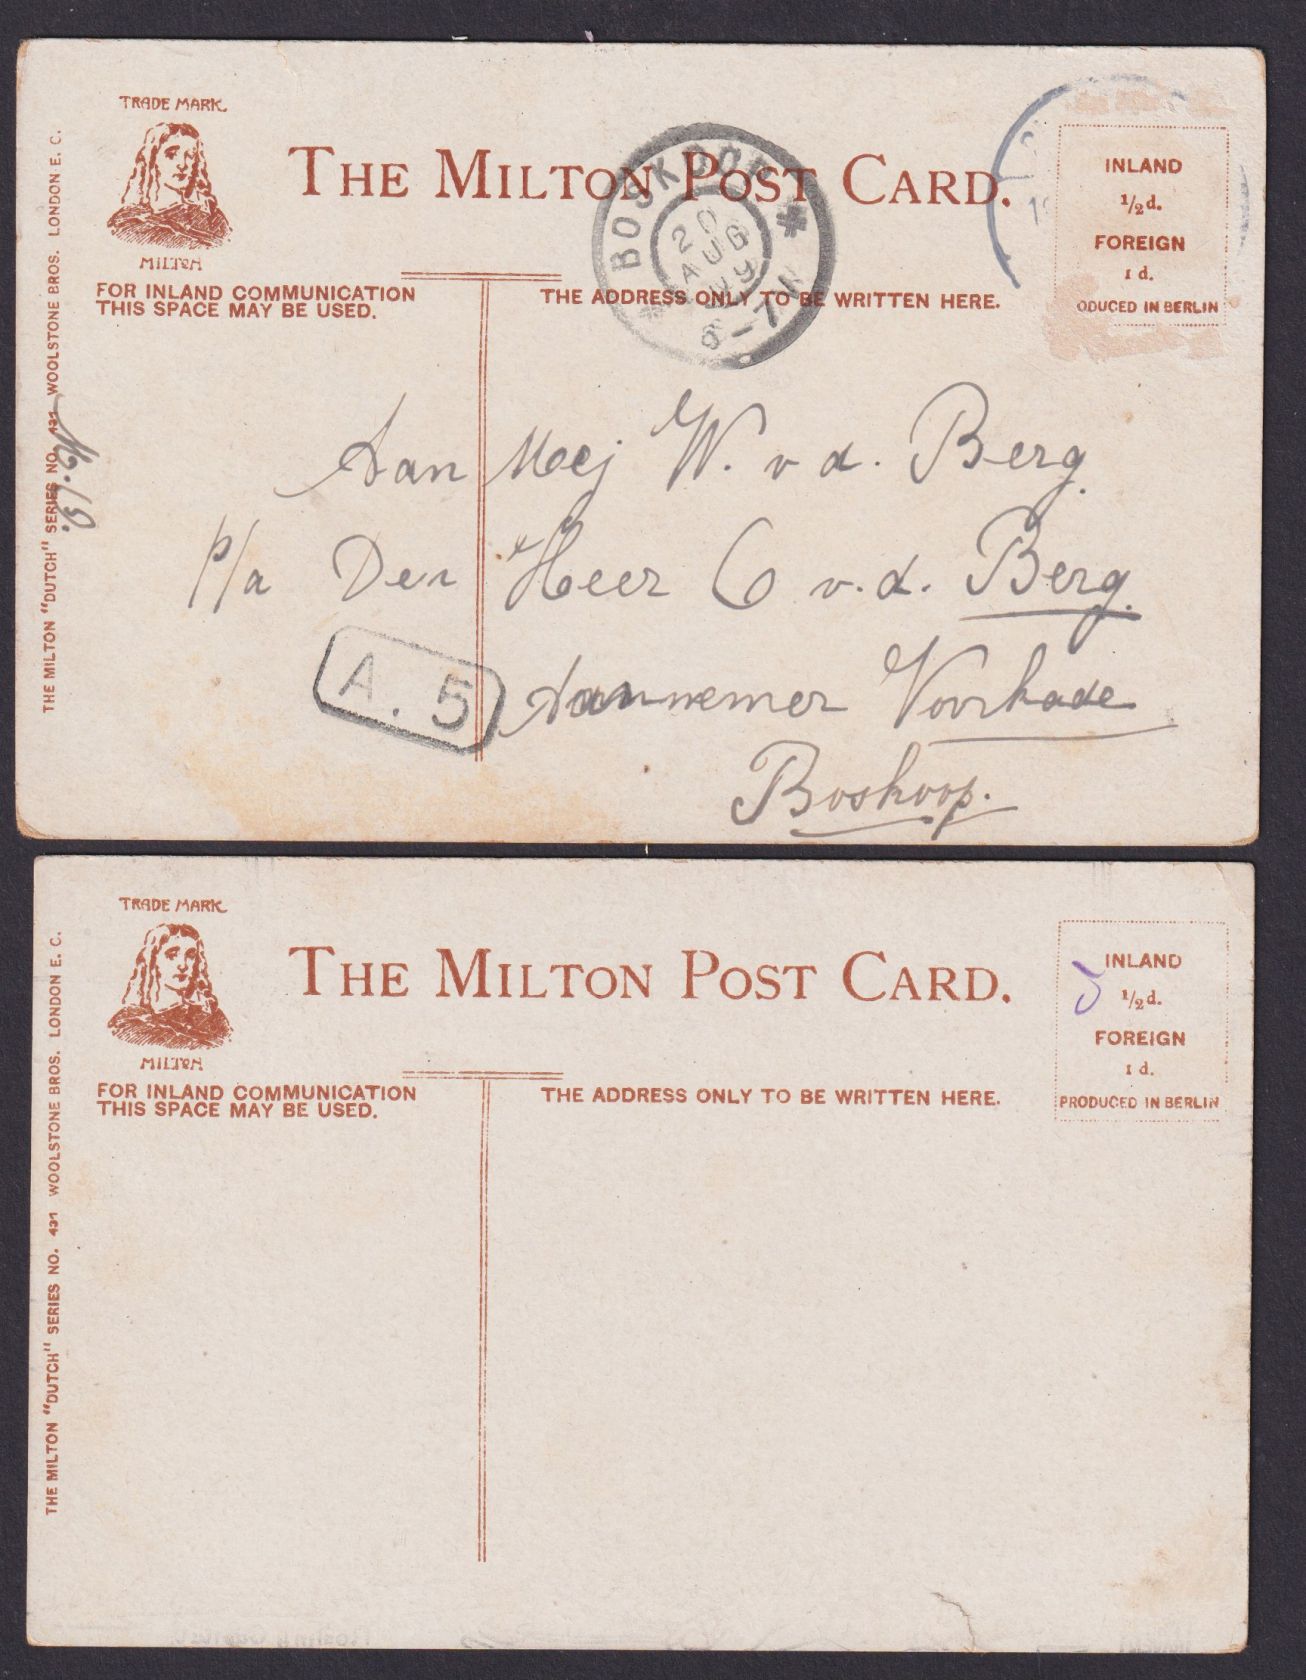 TRADE MARK
MILTON
THE MILTON POST CARD.
INLAND
½d.
FOREIGN
1d.
ODUCED IN BERLIN
BOSKOOP
20
AUG
09
6-7N
FOR INLAND COMMUNICATION
THIS SPACE MAY BE USED.
THE ADDRESS ONLY TO BE WRITTEN HERE.
THE MILTON "DUTCH" SERIES NO. 431 WOOLSTONE BROS. LONDON E. C.
Aan Mej W. v d. Berg.
p/a Den Heer C v. d. Berg.
A. 5
Aannemer Voorkade
Boskoop.
TRADE MARK
MILTON
THE MILTON POST CARD.
INLAND
½d.
FOREIGN
1d.
PRODUCED IN BERLIN
FOR INLAND COMMUNICATION
THIS SPACE MAY BE USED.
THE ADDRESS ONLY TO BE WRITTEN HERE.
THE MILTON "DUTCH" SERIES NO. 431 WOOLSTONE BROS. LONDON E. C.